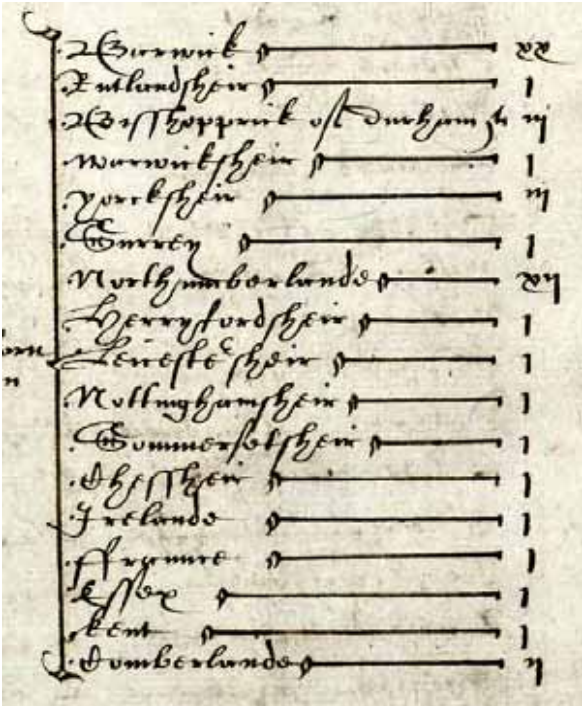 Barwick xx
Rutlandsheir j
Bisshopprick of durham iij
warwicksheir j
yorcksheir iij
Surrey j
Northumberlande xij
Herryfordsheir j
orn Leicestersheir j
n Nottinghamsheir j
Sommersetsheir j
Chessheir j
Irelande j
ffraunce j
Essex j
kent j
Comberlande ij